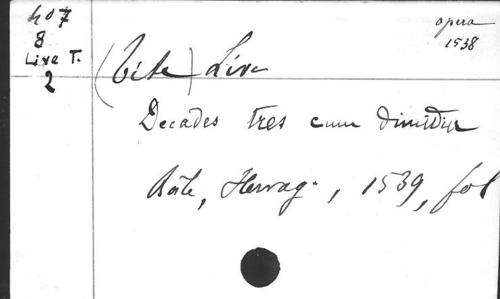 407
8
Live T.
2
opera
1538
(Tite) Live
Decades tres cum dimidia
Bâle, Hervag., 1539, fol